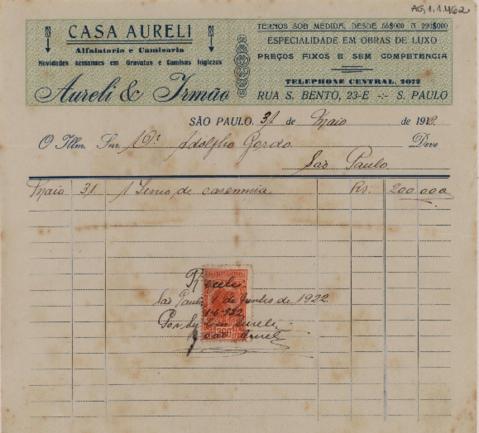 AG.1.1.462
CASA AURELI
Alfaiataria e Camisaria
Novidades semanaes em Gravatas e Camisas Inglezas
Aureli & Irmão
TERNOS SOB MEDIDA, DESDE A
ESPECIALIDADE EM OBRAS DE LUXO
PREÇOS FIXOS E SEM COMPETENCIA
TELEPHONE CENTRAL, 2022
RUA S. BENTO, 23-E -:- S. PAULO
SÃO PAULO, 31 de Maio de 192
O Illm. Snr. Dr. Adolpho Gordo Deve
São Paulo
Maio 31 1 Terno de casemira Rs. 200.000
Recebi
São Paulo, de Junho de 1922
Aureli